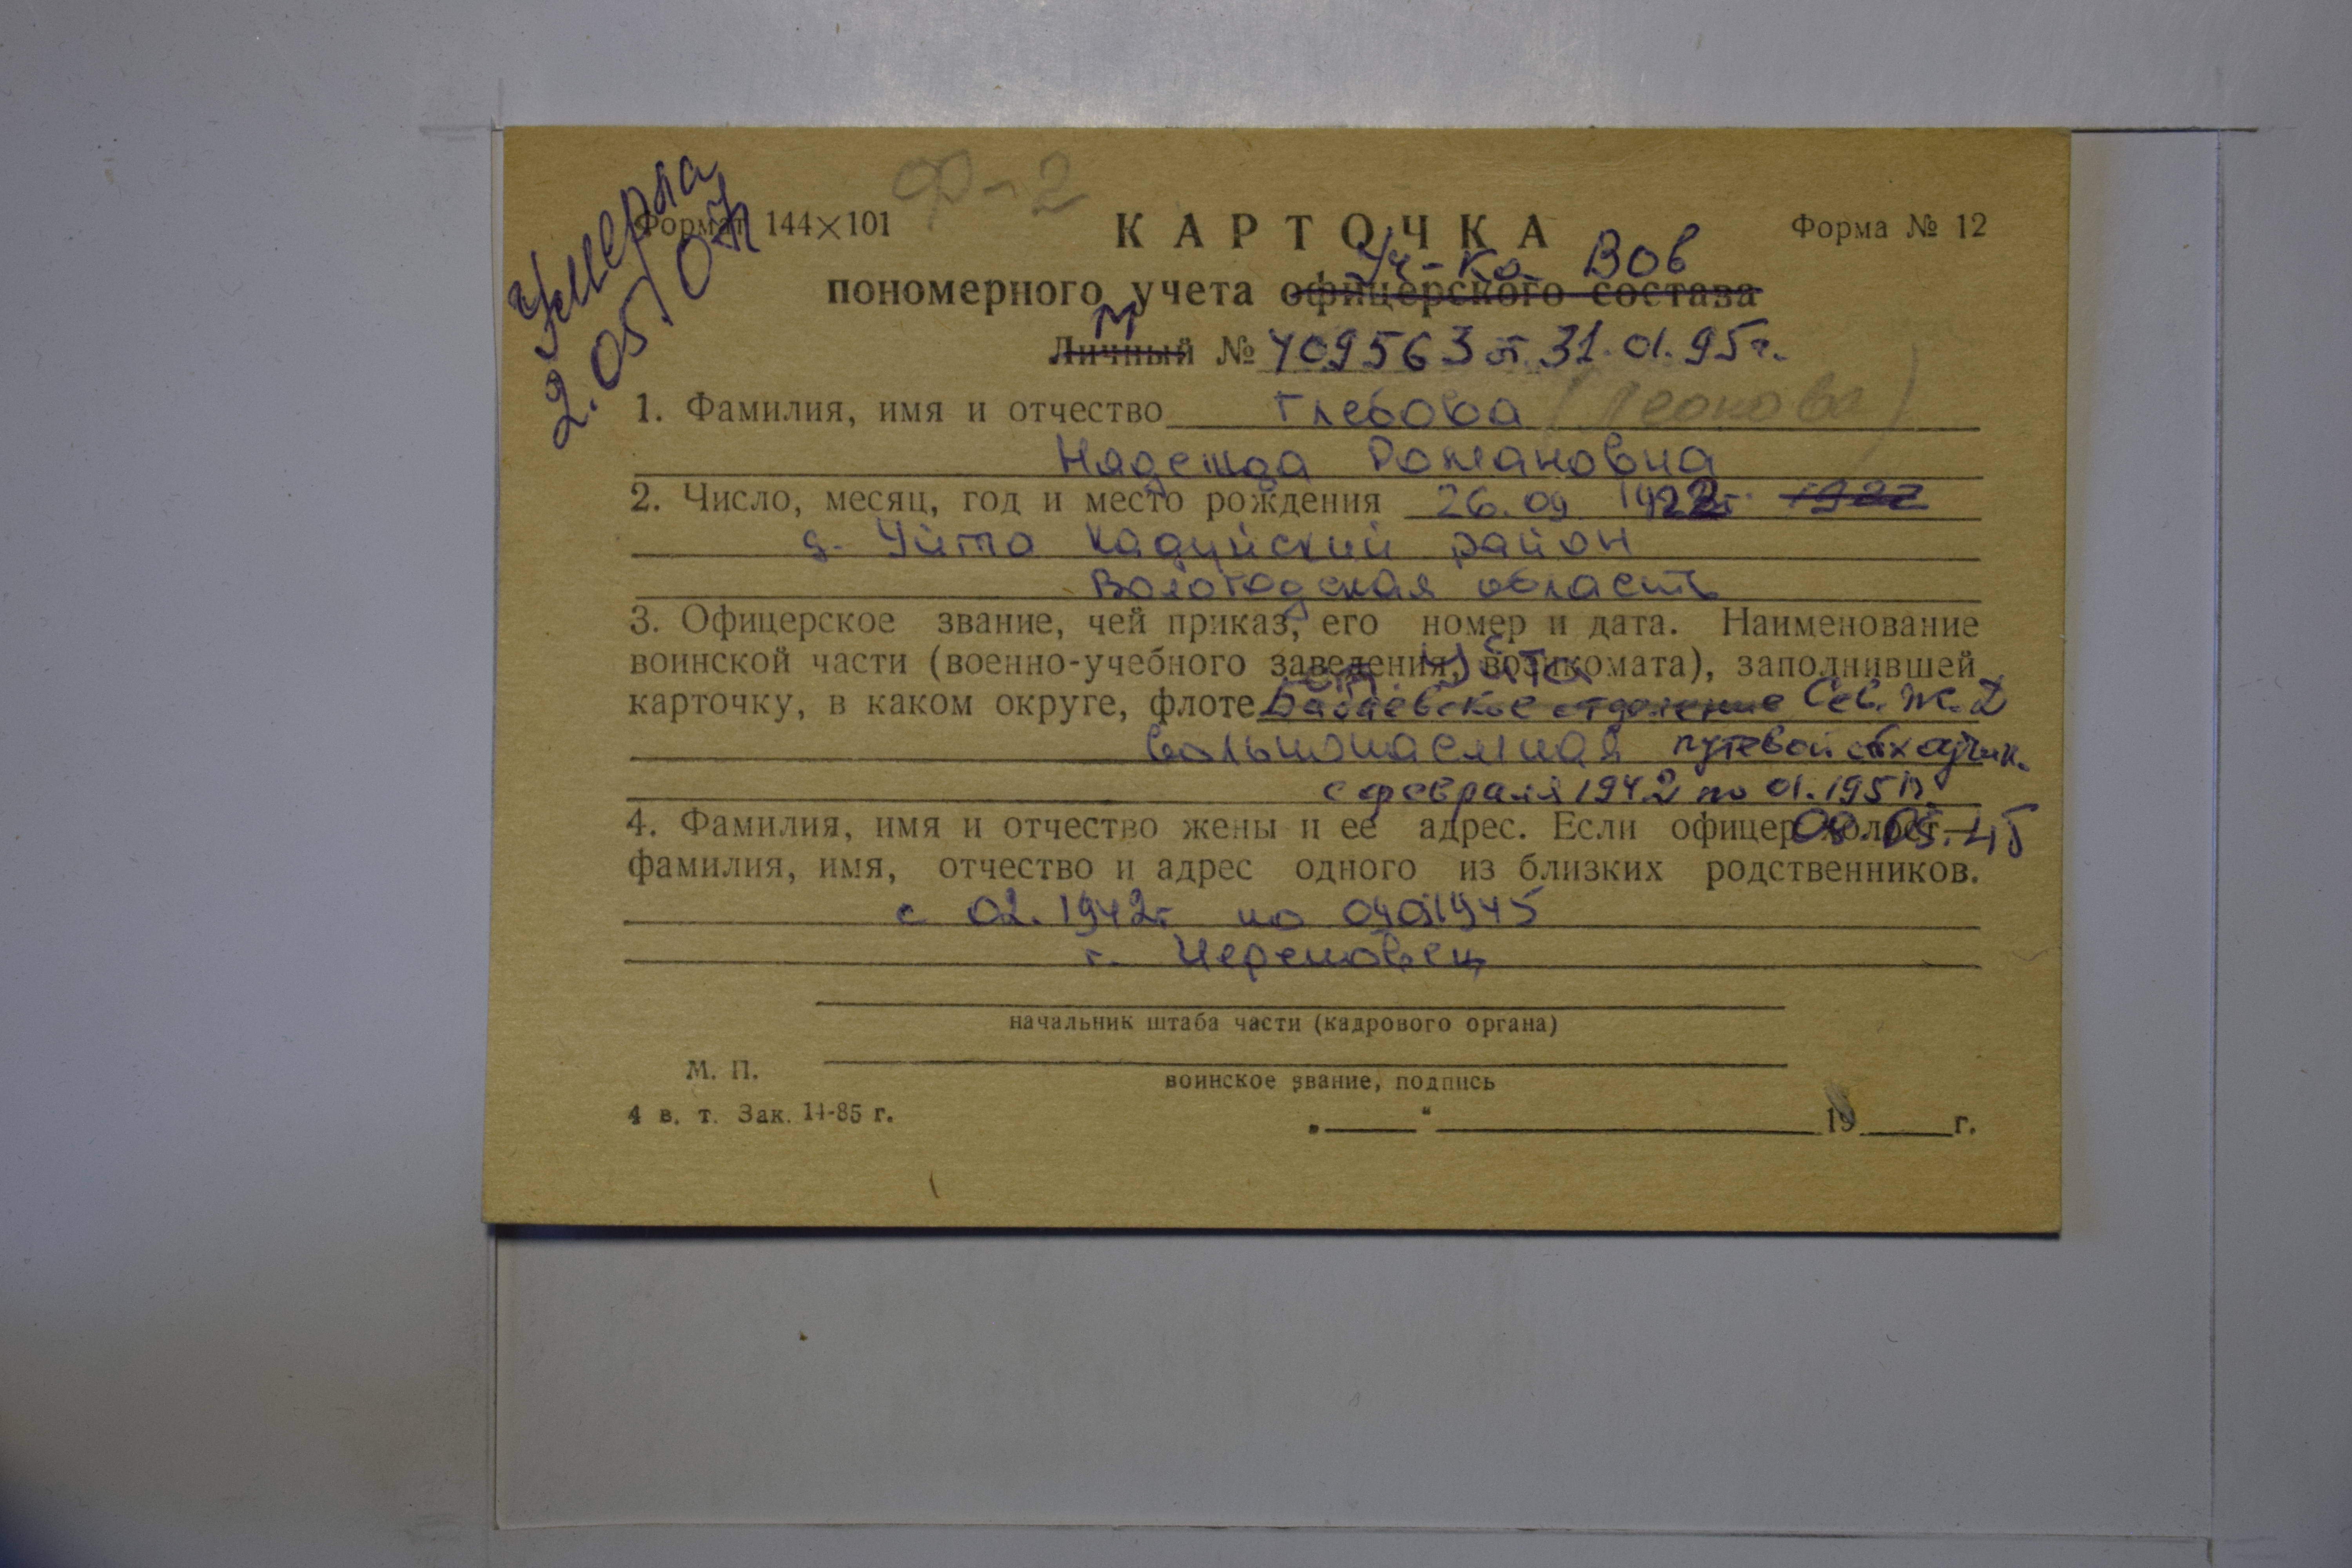 Умерла
2.05.07
Ф-2
Формат 144×101
КАРТОЧКА
Форма № 12
Уч-ка ВОв
пономерного учета офицерского состава
М
Личный № 409563 от 31.01.95г.
1. Фамилия, имя и отчество Глебова (Леонова)
Надежда Романовна
2. Число, месяц, год и место рождения 26.09 1922г. 1922
д. Уйта Кадуйский район
Вологодская область
3. Офицерское звание, чей приказ, его номер и дата. Наименование
воинской части (военно-учебного заведения, военкомата), заполнившей
ст. Уйта
карточку, в каком округе, флоте Бабаевское отделение Сев. ж. д
вольнонаемная путевой обходчик.
с февраля 1942 по 01.1951г.
4. Фамилия, имя и отчество жены и ее адрес. Если офицер холост —
09.05.45
фамилия, имя, отчество и адрес одного из близких родственников.
с 02.1942г по 1945
г. Череповец
начальник штаба части (кадрового органа)
М. П.
воинское звание, подпись
4 в. т. Зак. 14-85 г.
„____“ ____________ 19____г.